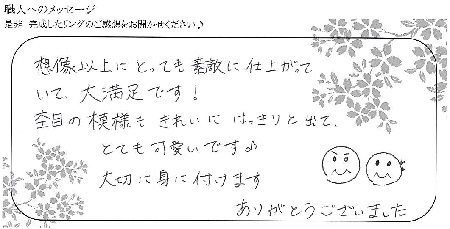 職人へのメッセージ
是非、完成したリングのご感想をお聞かせください♪
想像以上にとっても素敵に仕上がって
いて、大満足です！
杢目の模様もきれいにはっきりと出て、
とても可愛いです♪
大切に身に付けます
ありがとうございました